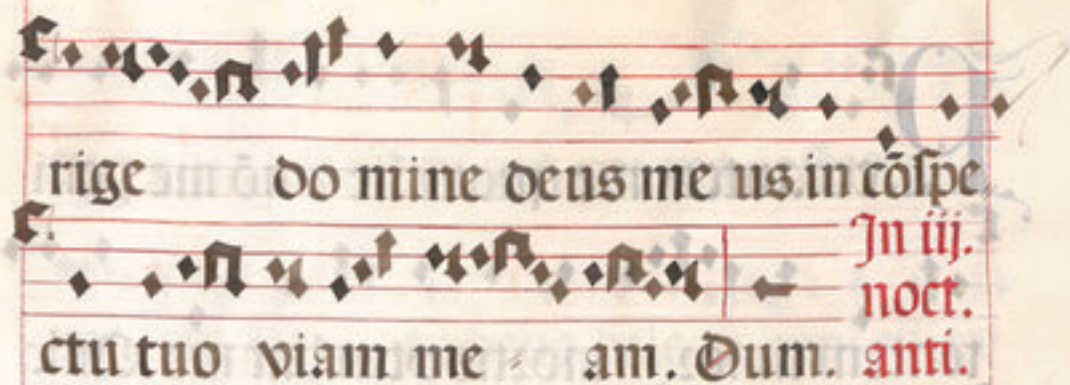 rige do mine deus me us in cōſpe
ctu tuo viam me am. Dum.
In iij.
noct.
anti.